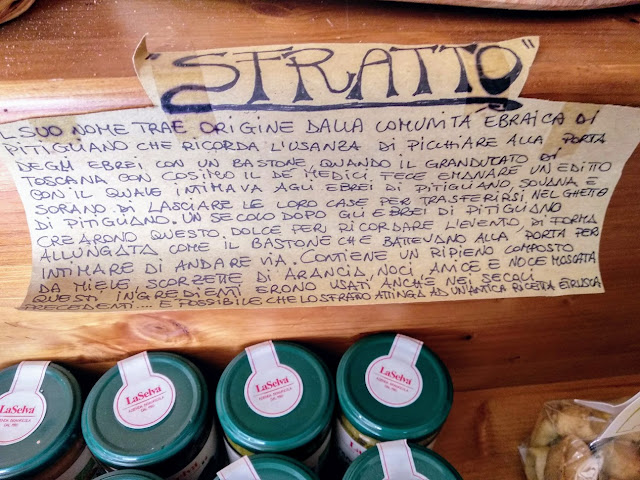 "SFRATTO"
L SUO NOME TRAE ORIGINE DALLA COMUNITÀ EBRAICA DI
PITIGLIANO CHE RICORDA L'USANZA DI PICCHIARE ALLA PORTA
DEGLI EBREI CON UN BASTONE, QUANDO IL GRANDUCATO DI
TOSCANA CON COSIMO II DE MEDICI, FECE EMANARE UN EDITTO
CON IL QUALE INTIMAVA AGLI EBREI DI PITIGLIANO, SOVANA E
SORANO. DI LASCIARE LE LORO CASE PER TRASFERIRSI NEL GHETTO
DI PITIGLIANO. UN SECOLO DOPO GLI EBREI DI PITIGLIANO
CREARONO QUESTO DOLCE PER RICORDARE L'EVENTO, DI FORMA
ALLUNGATA COME IL BASTONE CHE BATTEVANO ALLA PORTA PER
INTIMARE DI ANDARE VIA. CONTIENE UN RIPIENO COMPOSTO
DA MIELE, SCORZETTE DI ARANCIA, NOCI, ANICE E NOCE MOSCATA
QUESTI INGREDIENTI ERONO USATI ANCHE NEI SECOLI
PRECEDENTI.... E POSSIBILE CHE LO SFRATTO ATTINGA AD UN'ANTICA RICETTA ETRUSCA
LaSelva
LaSelva
LaSelva
LaSelva
LaSelva
LaSelva